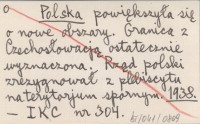 o Polska powiększyła się
o nowe obszary. Granica z
Czechosłowacją ostatecznie
wyznaczona. Rząd polski
zrezygnował z plebiscytu
na terytorjum spornym. 1938.
— IKC nr 304.